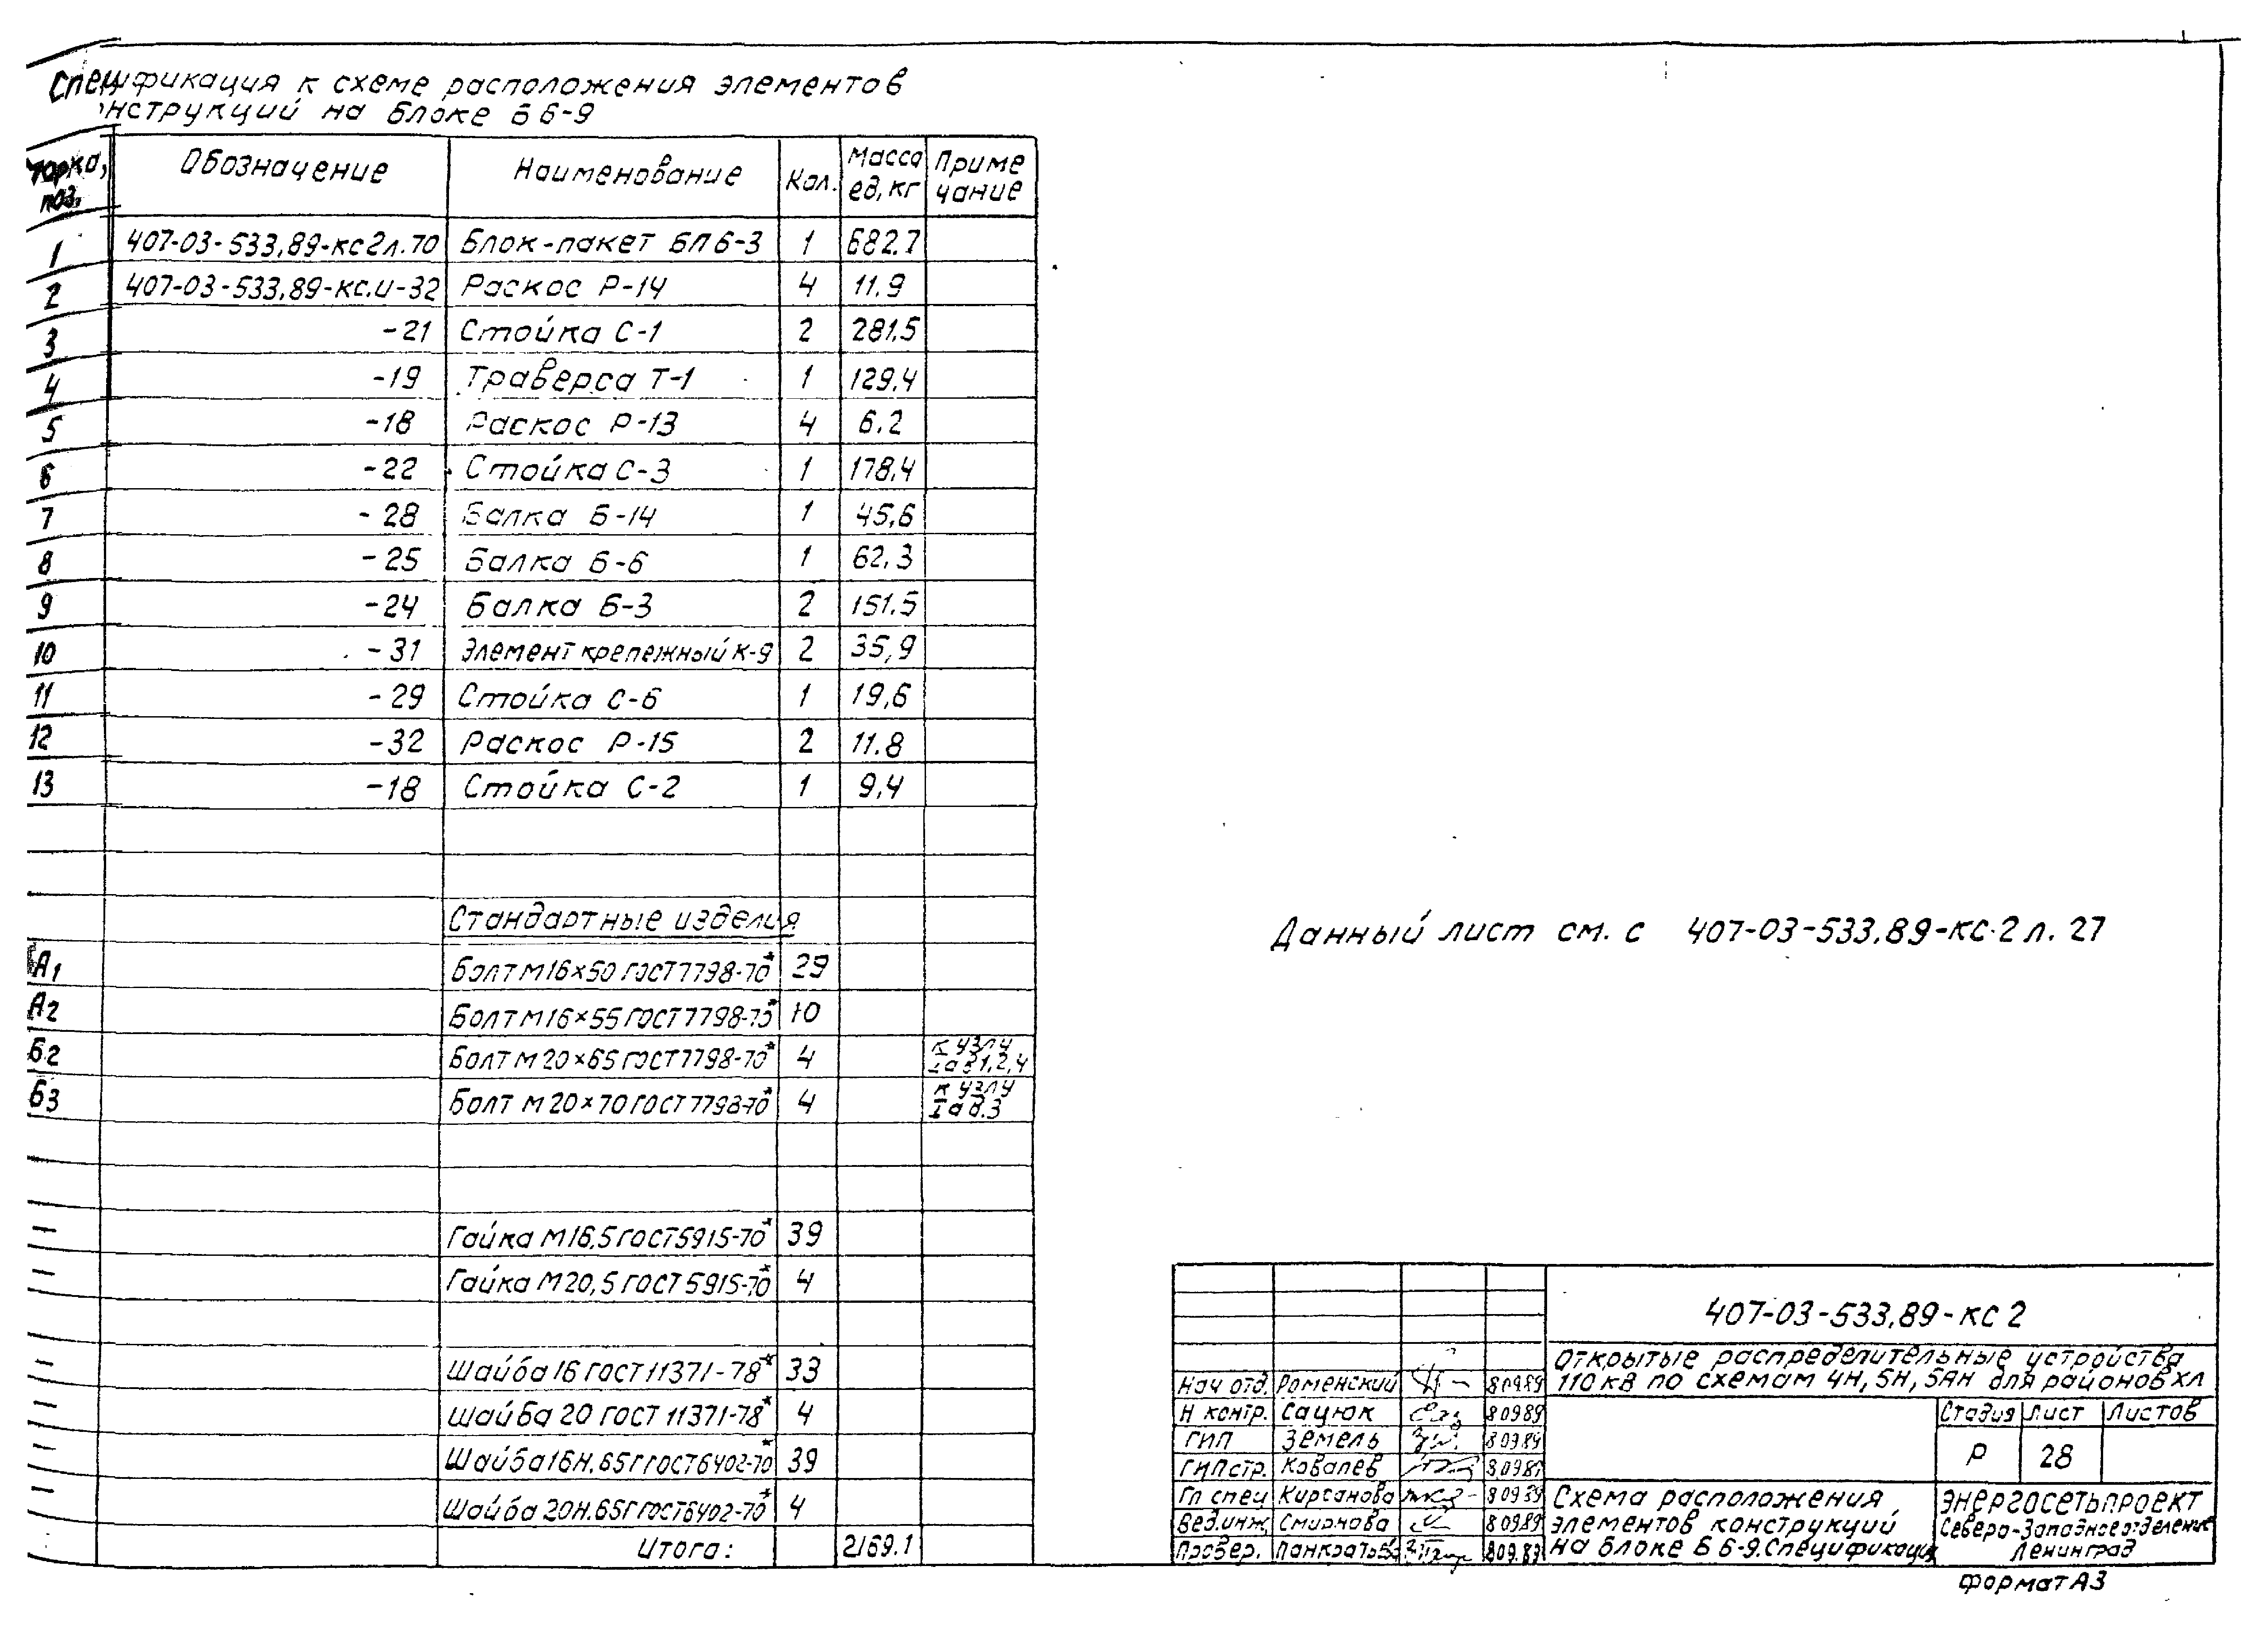 Спецификация к схеме расположения элементов
конструкций на блоке Б6-9
Марка, поз. Обозначение Наименование Кол. Масса ед, кг Приме чание
1 407-03-533,89-кс2л.70 Блок-пакет БП6-3 1 682.7
2 407-03-533,89-кс.и-32 Раскос Р-14 4 11.9
3 -21 Стойка С-1 2 281.5
4 -19 Траверса Т-1 1 129,4
5 -18 Раскос Р-13 4 6.2
6 -22 Стойка С-3 1 178,4
7 -28 Балка Б-14 1 45,6
8 -25 Балка Б-6 1 62,3
9 -24 Балка Б-3 2 151.5
10 -31 Элемент крепежный К-9 2 35,9
11 -29 Стойка С-6 1 19,6
12 -32 Раскос Р-15 2 11.8
13 -18 Стойка С-2 1 9,4
Стандартные изделия
А1 Болт М16×50 ГОСТ 7798-70* 29
А2 Болт М16×55 ГОСТ 7798-70* 10
Б2 Болт М20×65 ГОСТ 7798-70* 4 к узлу
Б3 Болт М20×70 ГОСТ 7798-70* 4 к узлу
— Гайка М16,5 ГОСТ 5915-70* 39
— Гайка М20,5 ГОСТ 5915-70* 4
— Шайба 16 ГОСТ 11371-78* 33
— Шайба 20 ГОСТ 11371-78* 4
— Шайба 16Н.65Г ГОСТ 6402-70* 39
— Шайба 20Н.65Г ГОСТ 6402-70* 4
Итого: 2169.1
Данный лист см. с 407-03-533,89-кс.2 л. 27
407-03-533,89-кс 2
Открытые распределительные устройства
110 кв по схемам 4Н, 5Н, 5АН для районов хл
Нач отд. Роменский 8.09.89
Н контр. Сацюк 8 09 89
ГИП Земель 8 09 89
ГИП стр. Ковалев 8 09 89
Гл спец Кирсанова 8 09 89
Вед.инж. Смирнова 8 09 89
Провер. Панкратьева 8 09.89
Стадия Лист Листов
Р 28
Схема расположения
элементов конструкций
на блоке Б 6-9. Спецификация
Энергосетьпроект
Северо-Западное отделение
Ленинград
Формат А3